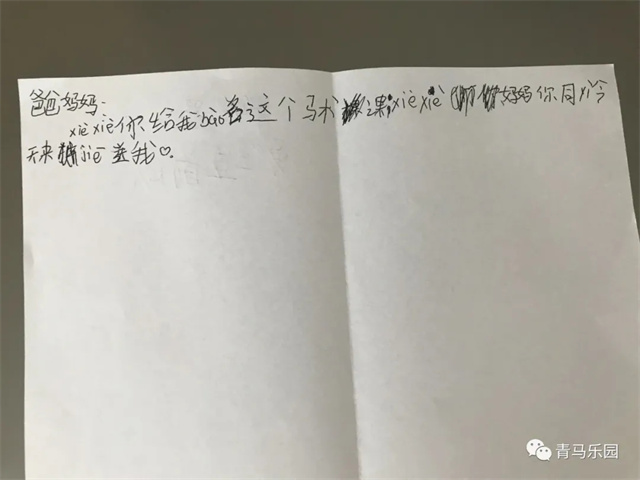 爸爸妈妈:
xiè xiè 你给我 bào 名这个马术课, xiè xiè 妈妈你同 xì 今
天来 jiē 我♡.
青马乐园